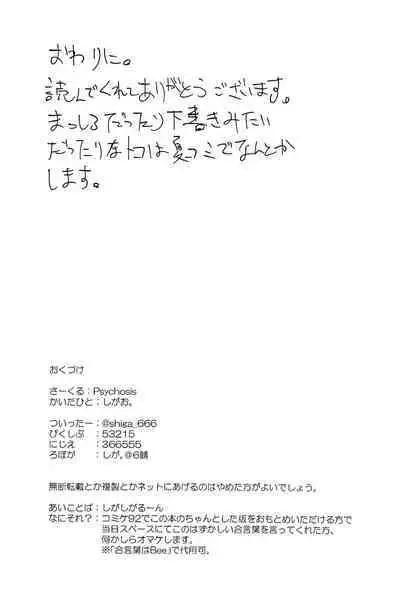 おわりに。
読んでくれてありがとうございます。
まっしろだったり下書きみたい
だったりなトコは夏コミでなんとか
します。
おくづけ
さーくる：Psychosis
かいたひと：しがお。
ついったー：@shiga_666
ぴくしぶ：53215
にじえ：366555
ろぼが：しが。@6号
無断転載とか複製とかネットにあげるのはやめた方がよいでしょう。
あいことば：しがしがるーん
なにそれ？：コミケ92でこの本のちゃんとした版をおもとめいただける方で
当日スペースにてこのはずかしい合言葉を言ってくれた方、
何かしらオマケします。
※「合言葉はBee」で代用可。